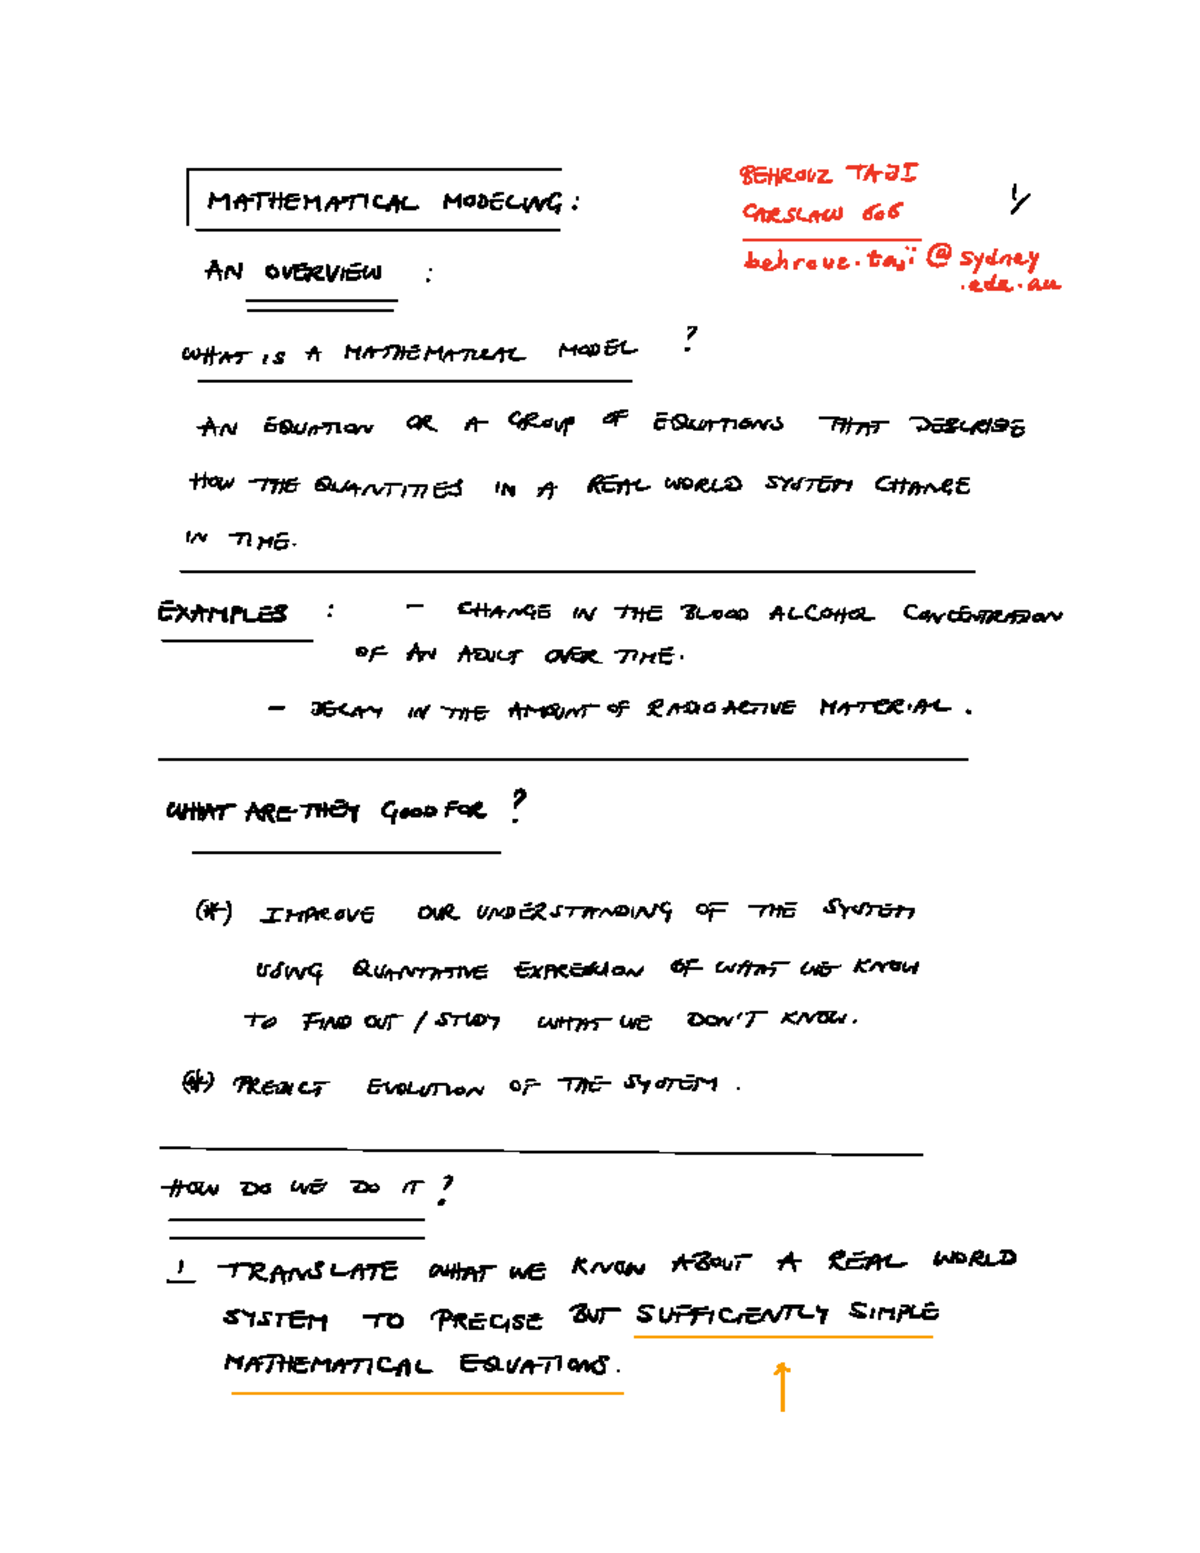 MATHEMATICAL MODELING:
BEHROUZ TAJI
CARSLAW 606
behrouz.taji@sydney
.edu.au
1/
AN OVERVIEW :
WHAT IS A MATHEMATICAL MODEL ?
AN EQUATION OR A GROUP OF EQUATIONS THAT DESCRIBE
HOW THE QUANTITIES IN A REAL WORLD SYSTEM CHANGE
IN TIME.
EXAMPLES : - CHANGE IN THE BLOOD ALCOHOL CONCENTRATION
OF AN ADULT OVER TIME.
- DECAY IN THE AMOUNT OF RADIOACTIVE MATERIAL.
WHAT ARE THEY GOOD FOR ?
(*) IMPROVE OUR UNDERSTANDING OF THE SYSTEM
USING QUANTITATIVE EXPRESSION OF WHAT WE KNOW
TO FIND OUT / STUDY WHAT WE DON'T KNOW.
(*) PREDICT EVOLUTION OF THE SYSTEM.
HOW DO WE DO IT ?
1 TRANSLATE WHAT WE KNOW ABOUT A REAL WORLD
SYSTEM TO PRECISE BUT SUFFICIENTLY SIMPLE
MATHEMATICAL EQUATIONS.